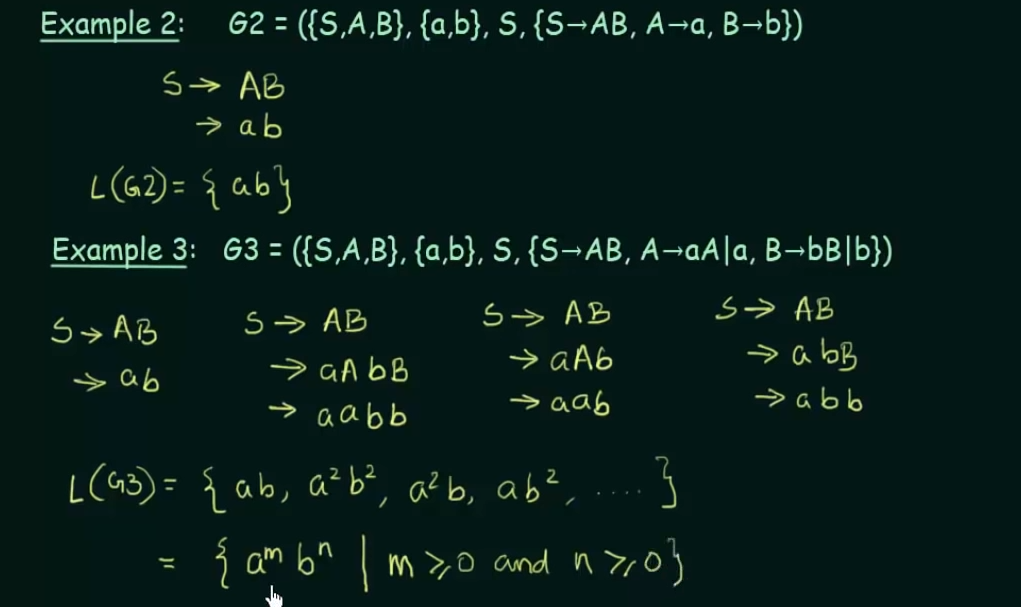 Example 2: G2 = ({S,A,B}, {a,b}, S, {S→AB, A→a, B→b})
S → AB
→ ab
L(G2) = {ab}
Example 3: G3 = ({S,A,B}, {a,b}, S, {S→AB, A→aA|a, B→bB|b})
S → AB
→ ab
S → AB
→ aAbB
→ aabb
S → AB
→ aAb
→ aab
S → AB
→ abB
→ abb
L(G3) = {ab, a²b², a²b, ab², ....}
= {aᵐ bⁿ | m ⩾ 0 and n ⩾ 0}